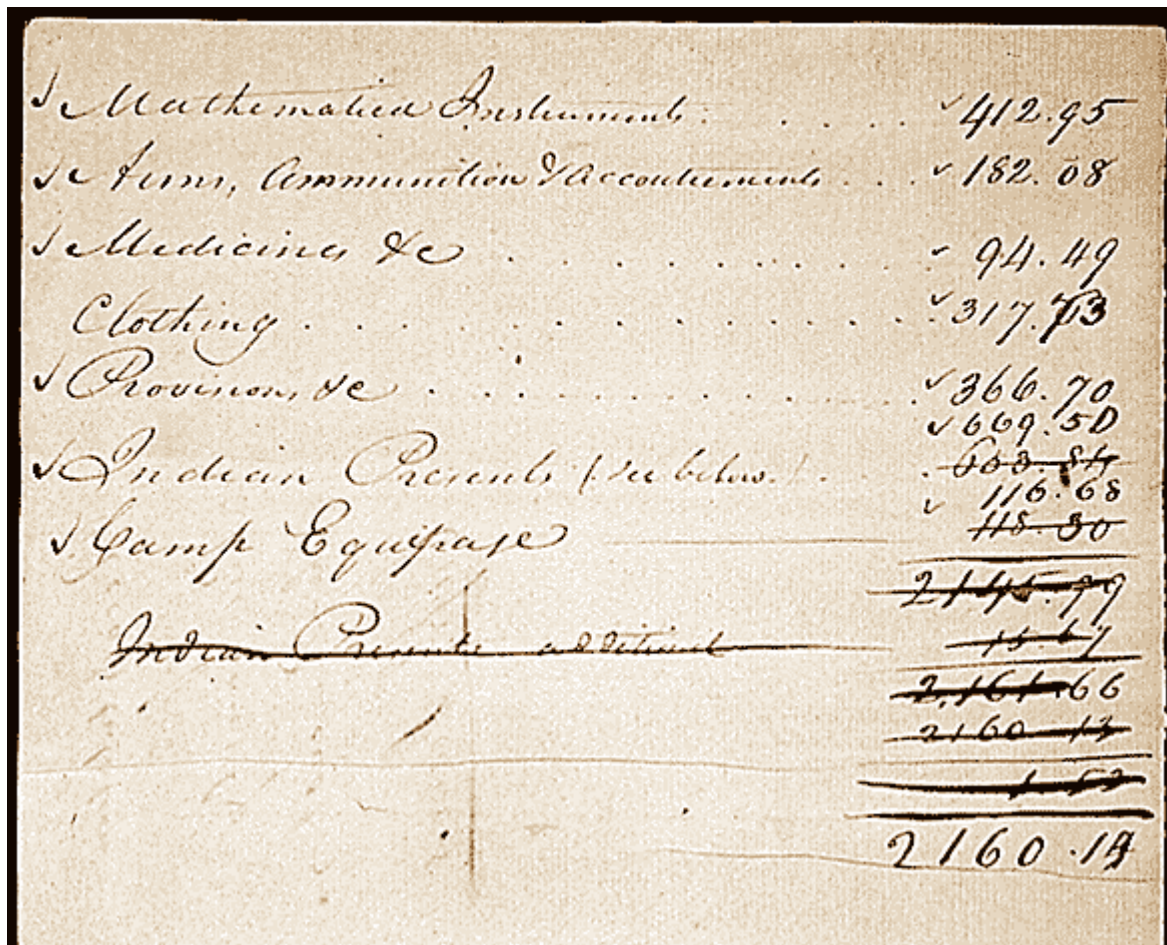 ✓ Mathematical Instruments . . . . ✓ 412.95
✓ Arms, Ammunition & Accoutrements . . . ✓ 182.08
✓ Medicines &c . . . . . . . . . . ✓ 94.49
Clothing . . . . . . . . . . . . . . ✓ 317.73
✓ Provisions &c . . . . . . . . . . ✓ 366.70
✓ 669.50
✓ Indian Presents (see below) . .
✓ 116.68
✓ Camp Equipage
2145.99
Indian Presents additional 15.67
2,161.66
2160.13
1.53
2160.14